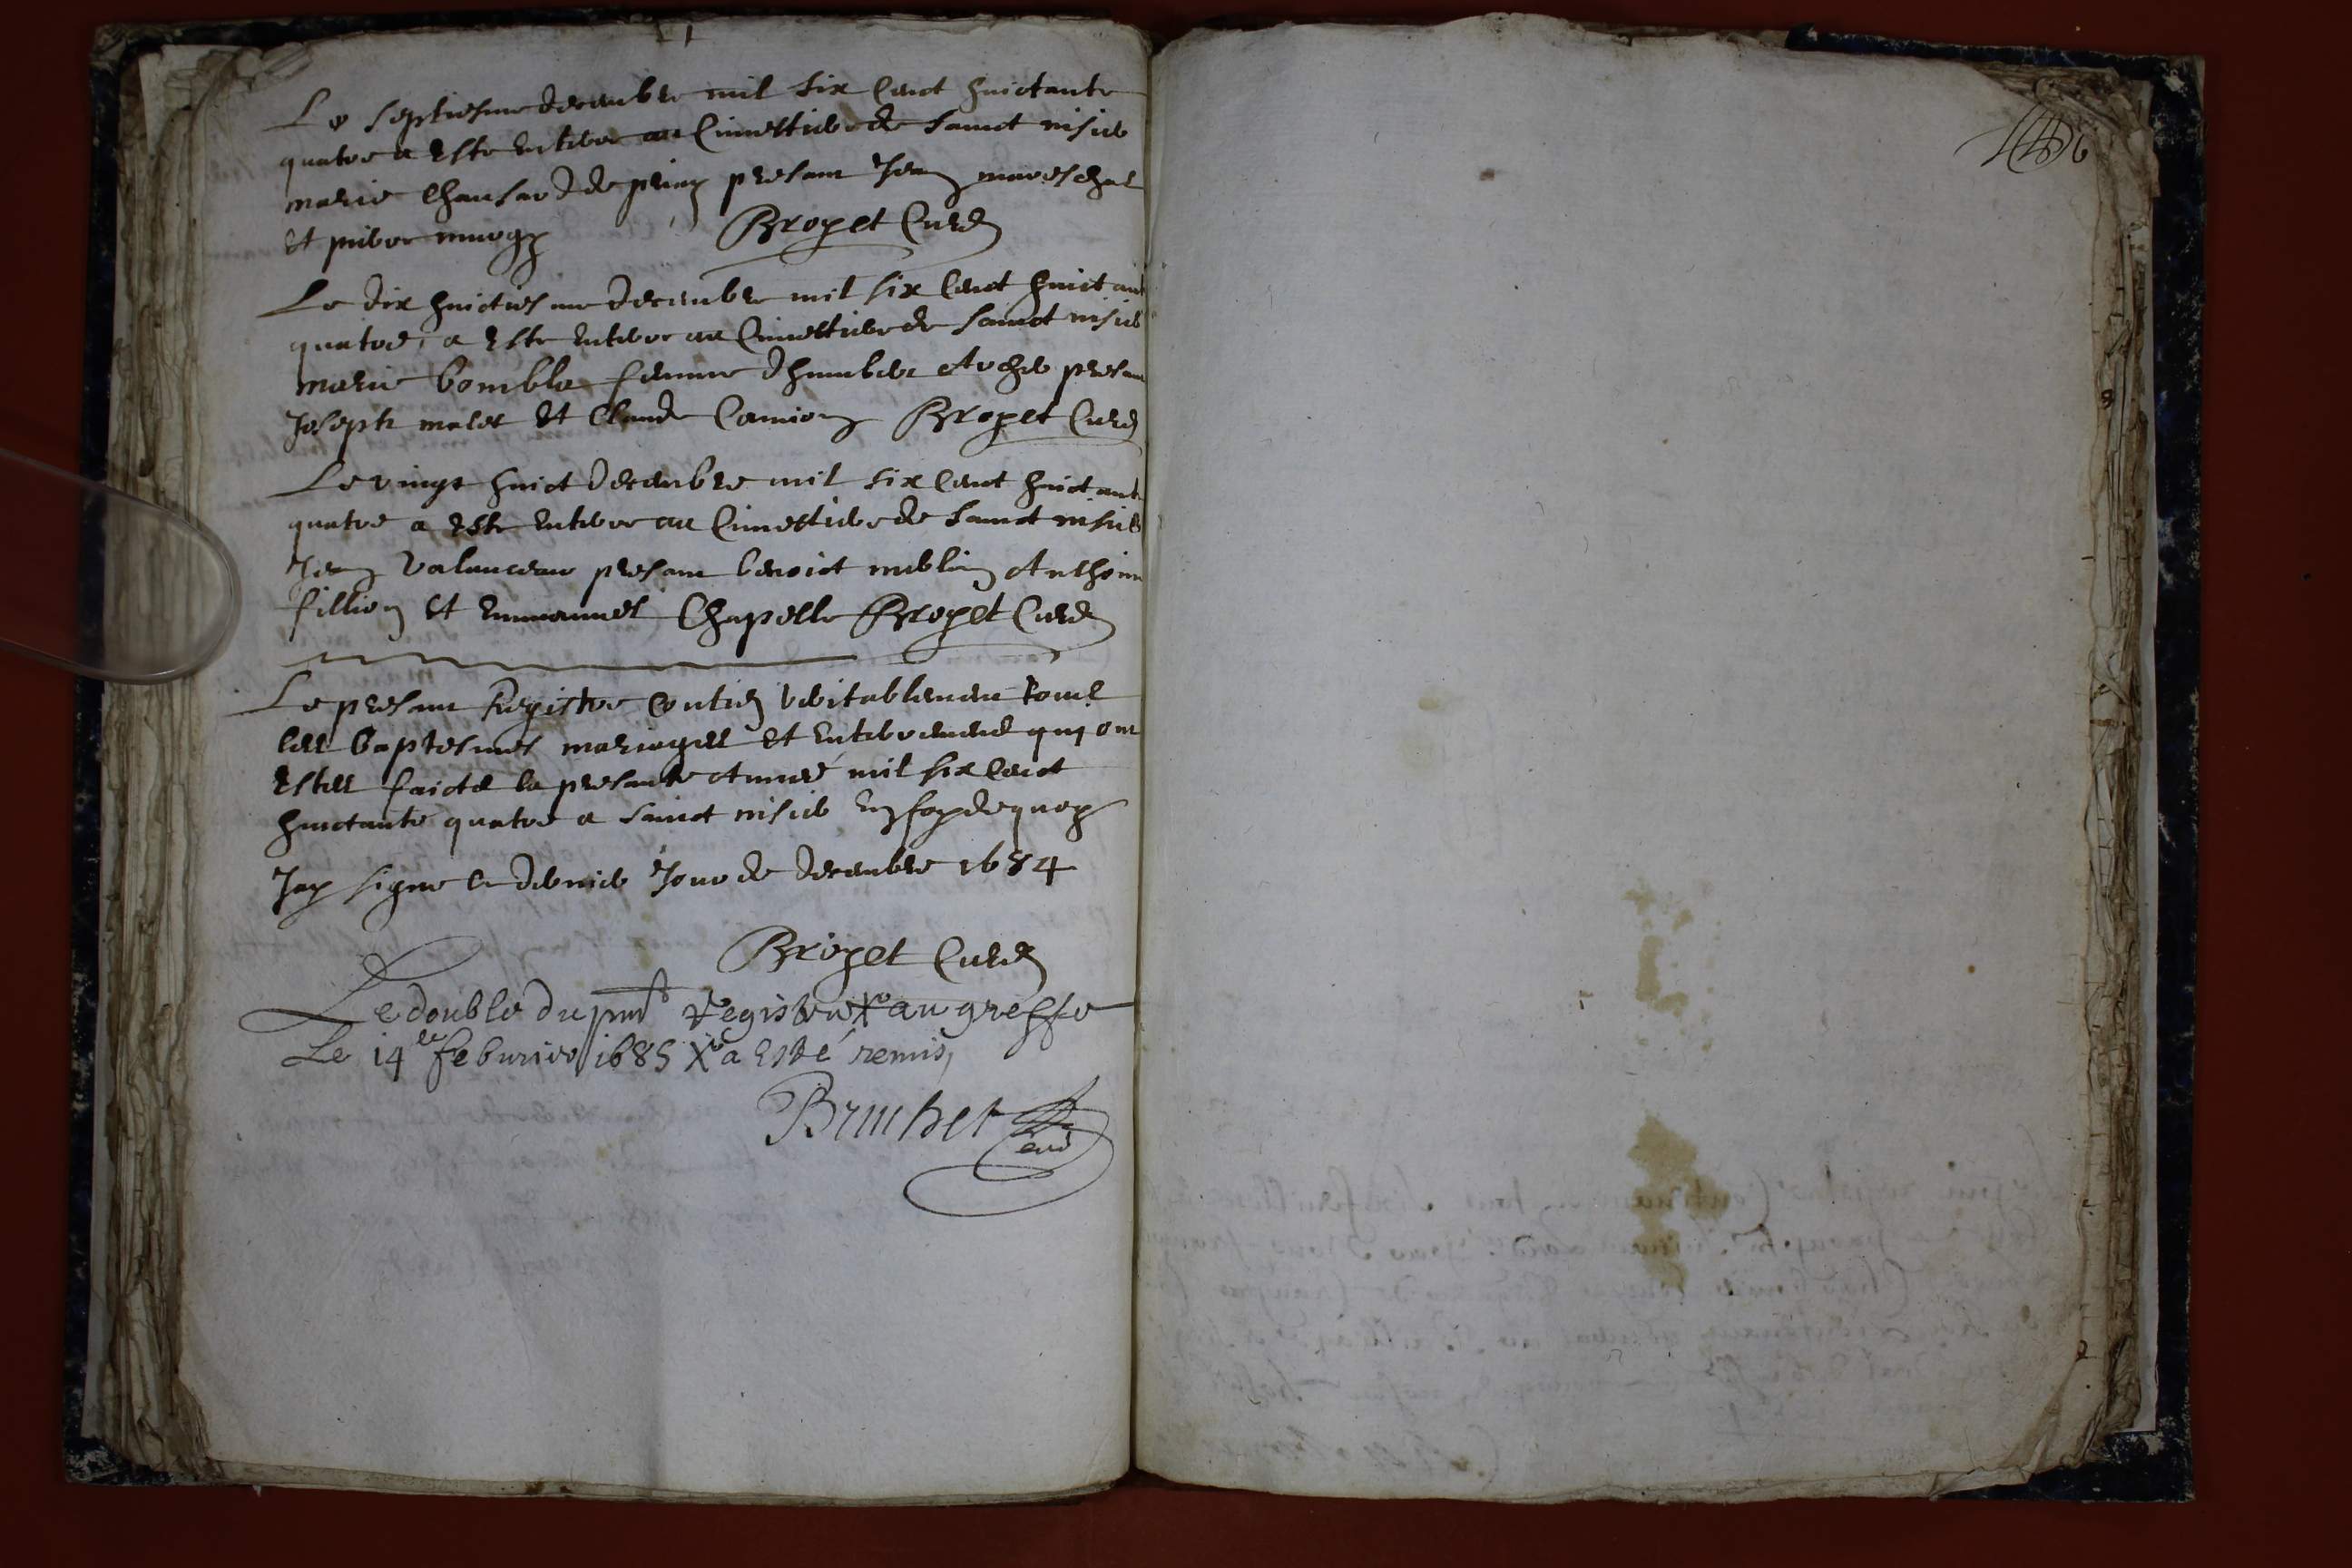 Le septiesme decembre mil six cent huictante
quatre a este enterre au cimettiere de sainct nisier
marie Chansard de priay presant Jean mareschal
et pierre
Broyet Curé
Le dix huictiesme decembre mil six cent huictant
quatre a este enterre au cimettiere de sainct nisier
marie bombla femme dhumbert Archer presant
Joseph malet et Claude Camion Broyet Curé
Le vingt huict decembre mil six cent huictant
quatre a este enterre au cimettiere de sainct nisier
Jean presant benoict Anthoine
fillion et Emmanuel Chapelle Broyet Curé
Le presant Registre contien veritablement tous
les baptesmes mariages et enterrements qui ont
estes faicts la presante Année mil six cent
huictante quatre a sainct nisier en foy de quoy
Jay signe le dernier Jour de decembre 1684
Broyet Curé
Le double du pnt Registre au greffe
Le 14e feburier 1685 a esté remis
Bruchet